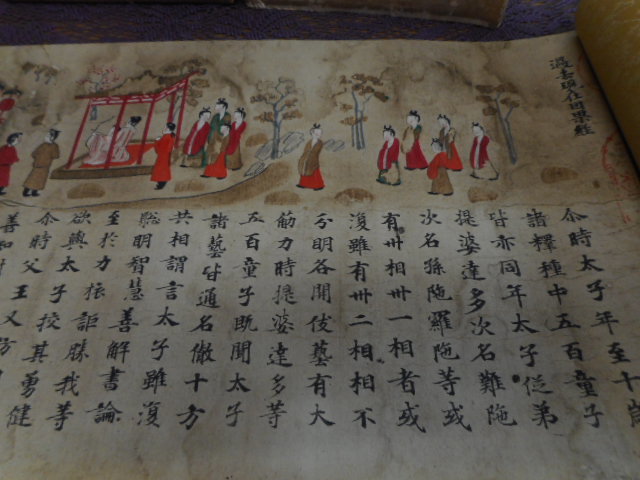 過去現在因果經
尒時太子年至十歲
諸釋種中五百童子
皆亦同年太子從弟
提婆達多次名難陁
次名孫陁羅陁等或
有卅相卅一相者或
復雖有卅二相相不
分明各閑伎藝有大
筋力時提婆達多等
五百童子既聞太子
諸藝皆通名徹十方
共相謂言太子雖復
聡明智慧善解書論
至於力猿詎勝我等
欲與太子挍其勇健
尒時父王又訪
善知射